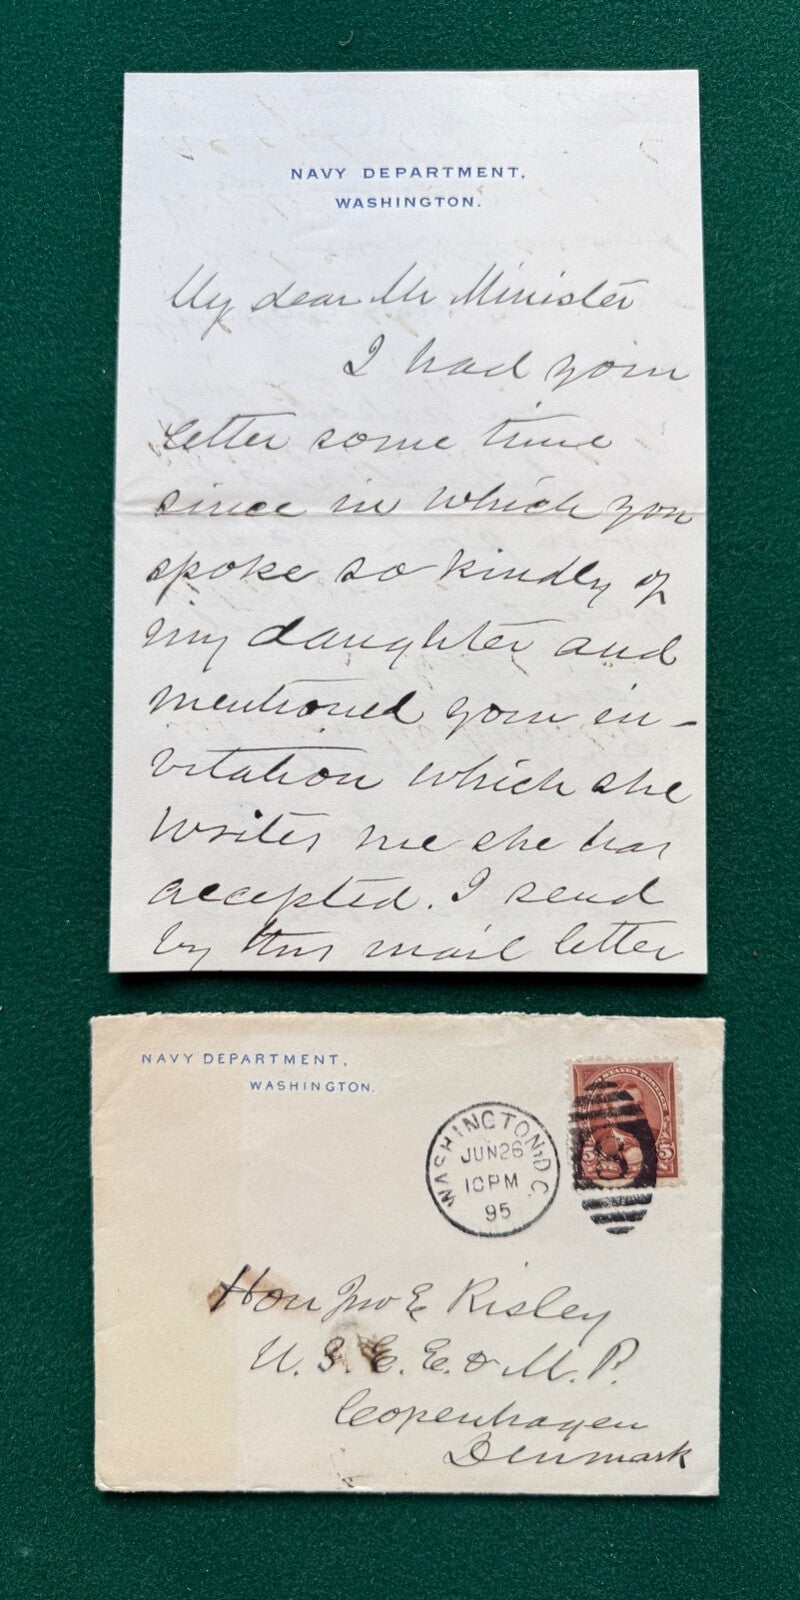 NAVY DEPARTMENT,
WASHINGTON.
My dear Mr Minister
I had your
letter some time
since in which you
spoke so kindly of
my daughter and
mentioned your in-
vitation which she
writes me she has
accepted. I send
by this mail letter
NAVY DEPARTMENT,
WASHINGTON.
STATES POSTAGE
5 5
WASHINGTON, D.C.
JUN 26
10 PM
95
Hon Jno E Risley
U. S. E. E. & M. P.
Copenhagen
Denmark